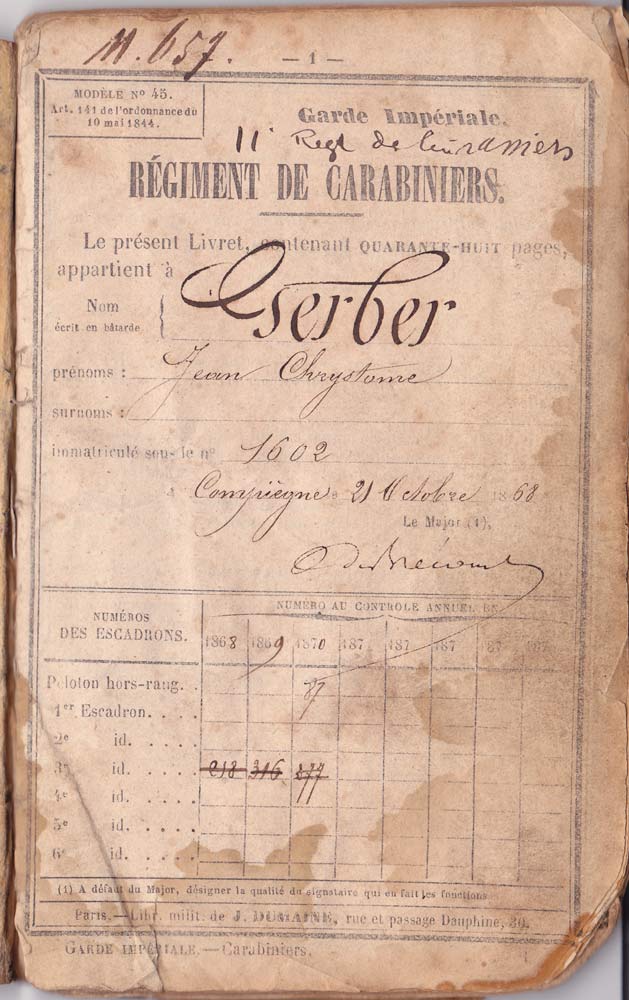 11.657.
— 1 —
MODÈLE N° 45.
Art. 141 de l'ordonnance du
10 mai 1844.
Garde Impériale.
11e Regt de Cuirassiers
RÉGIMENT DE CARABINIERS.
Le présent Livret, contenant QUARANTE-HUIT pages,
appartient à
Nom
écrit en bâtarde
Gerber
prénoms : Jean Chrystome
surnoms :
immatriculé sous le n° 1602
à Compiègne le 21 Octobre 1868
Le Major (1),
NUMÉROS
DES ESCADRONS.
NUMÉRO AU CONTROLE ANNUEL EN
1868 1869 1870 187 187 187 187 187
Peloton hors-rang. . 87
1er Escadron. . . .
2e id. . . . .
3e id. . . . . 218 316 277
4e id. . . . .
5e id. . . . .
6e id. . . . .
(1) A défaut du Major, désigner la qualité du signataire qui en fait les fonctions
Paris.—Libr. milit. de J. DUMAINE, rue et passage Dauphine, 30.
GARDE IMPÉRIALE.—Carabiniers.